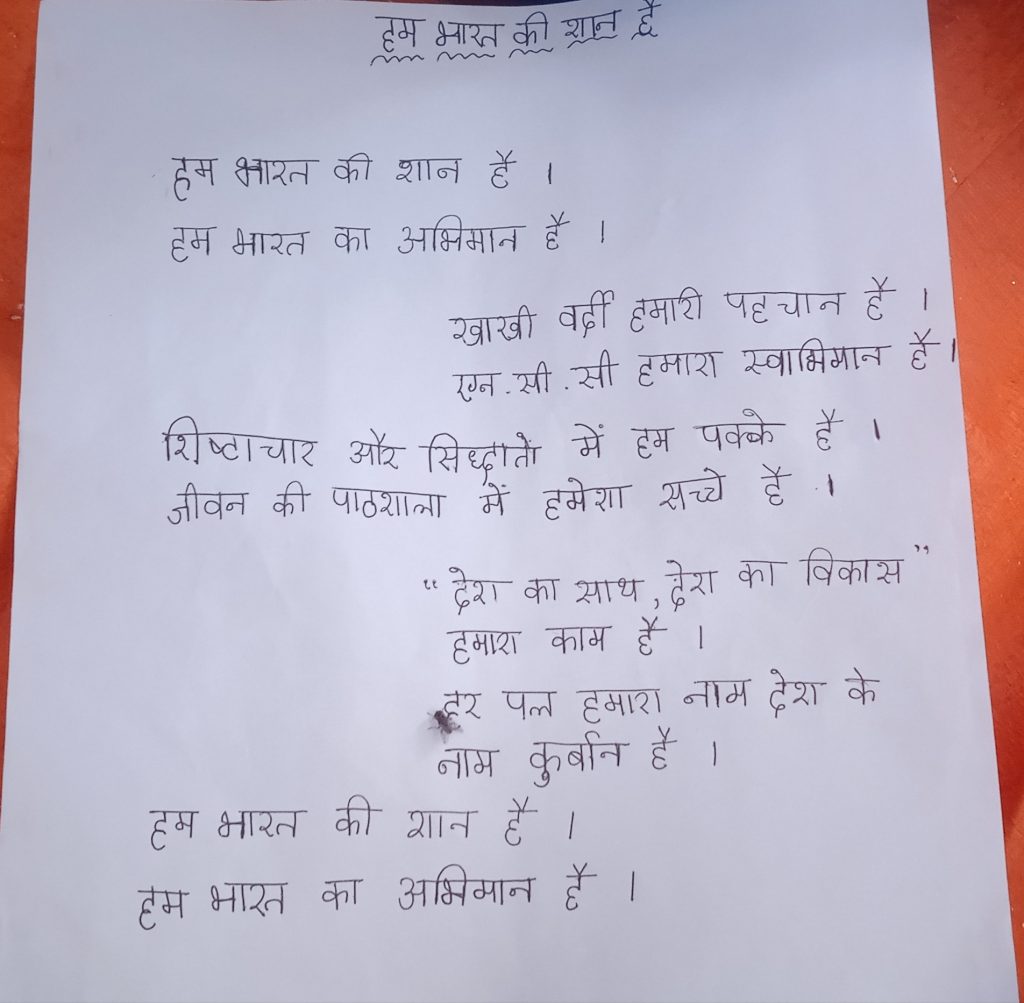 हम भारत की शान है
हम भारत की शान है ।
हम भारत का अभिमान है ।
खाखी वर्दी हमारी पहचान है ।
एन.सी.सी हमारा स्वाभिमान है ।
शिष्टाचार और सिध्दातों में हम पक्के है ।
जीवन की पाठशाला में हमेशा सच्चे है ।
“देश का साथ, देश का विकास”
हमारा काम है ।
हर पल हमारा नाम देश के
नाम कुर्बान है ।
हम भारत की शान है ।
हम भारत का अभिमान है ।